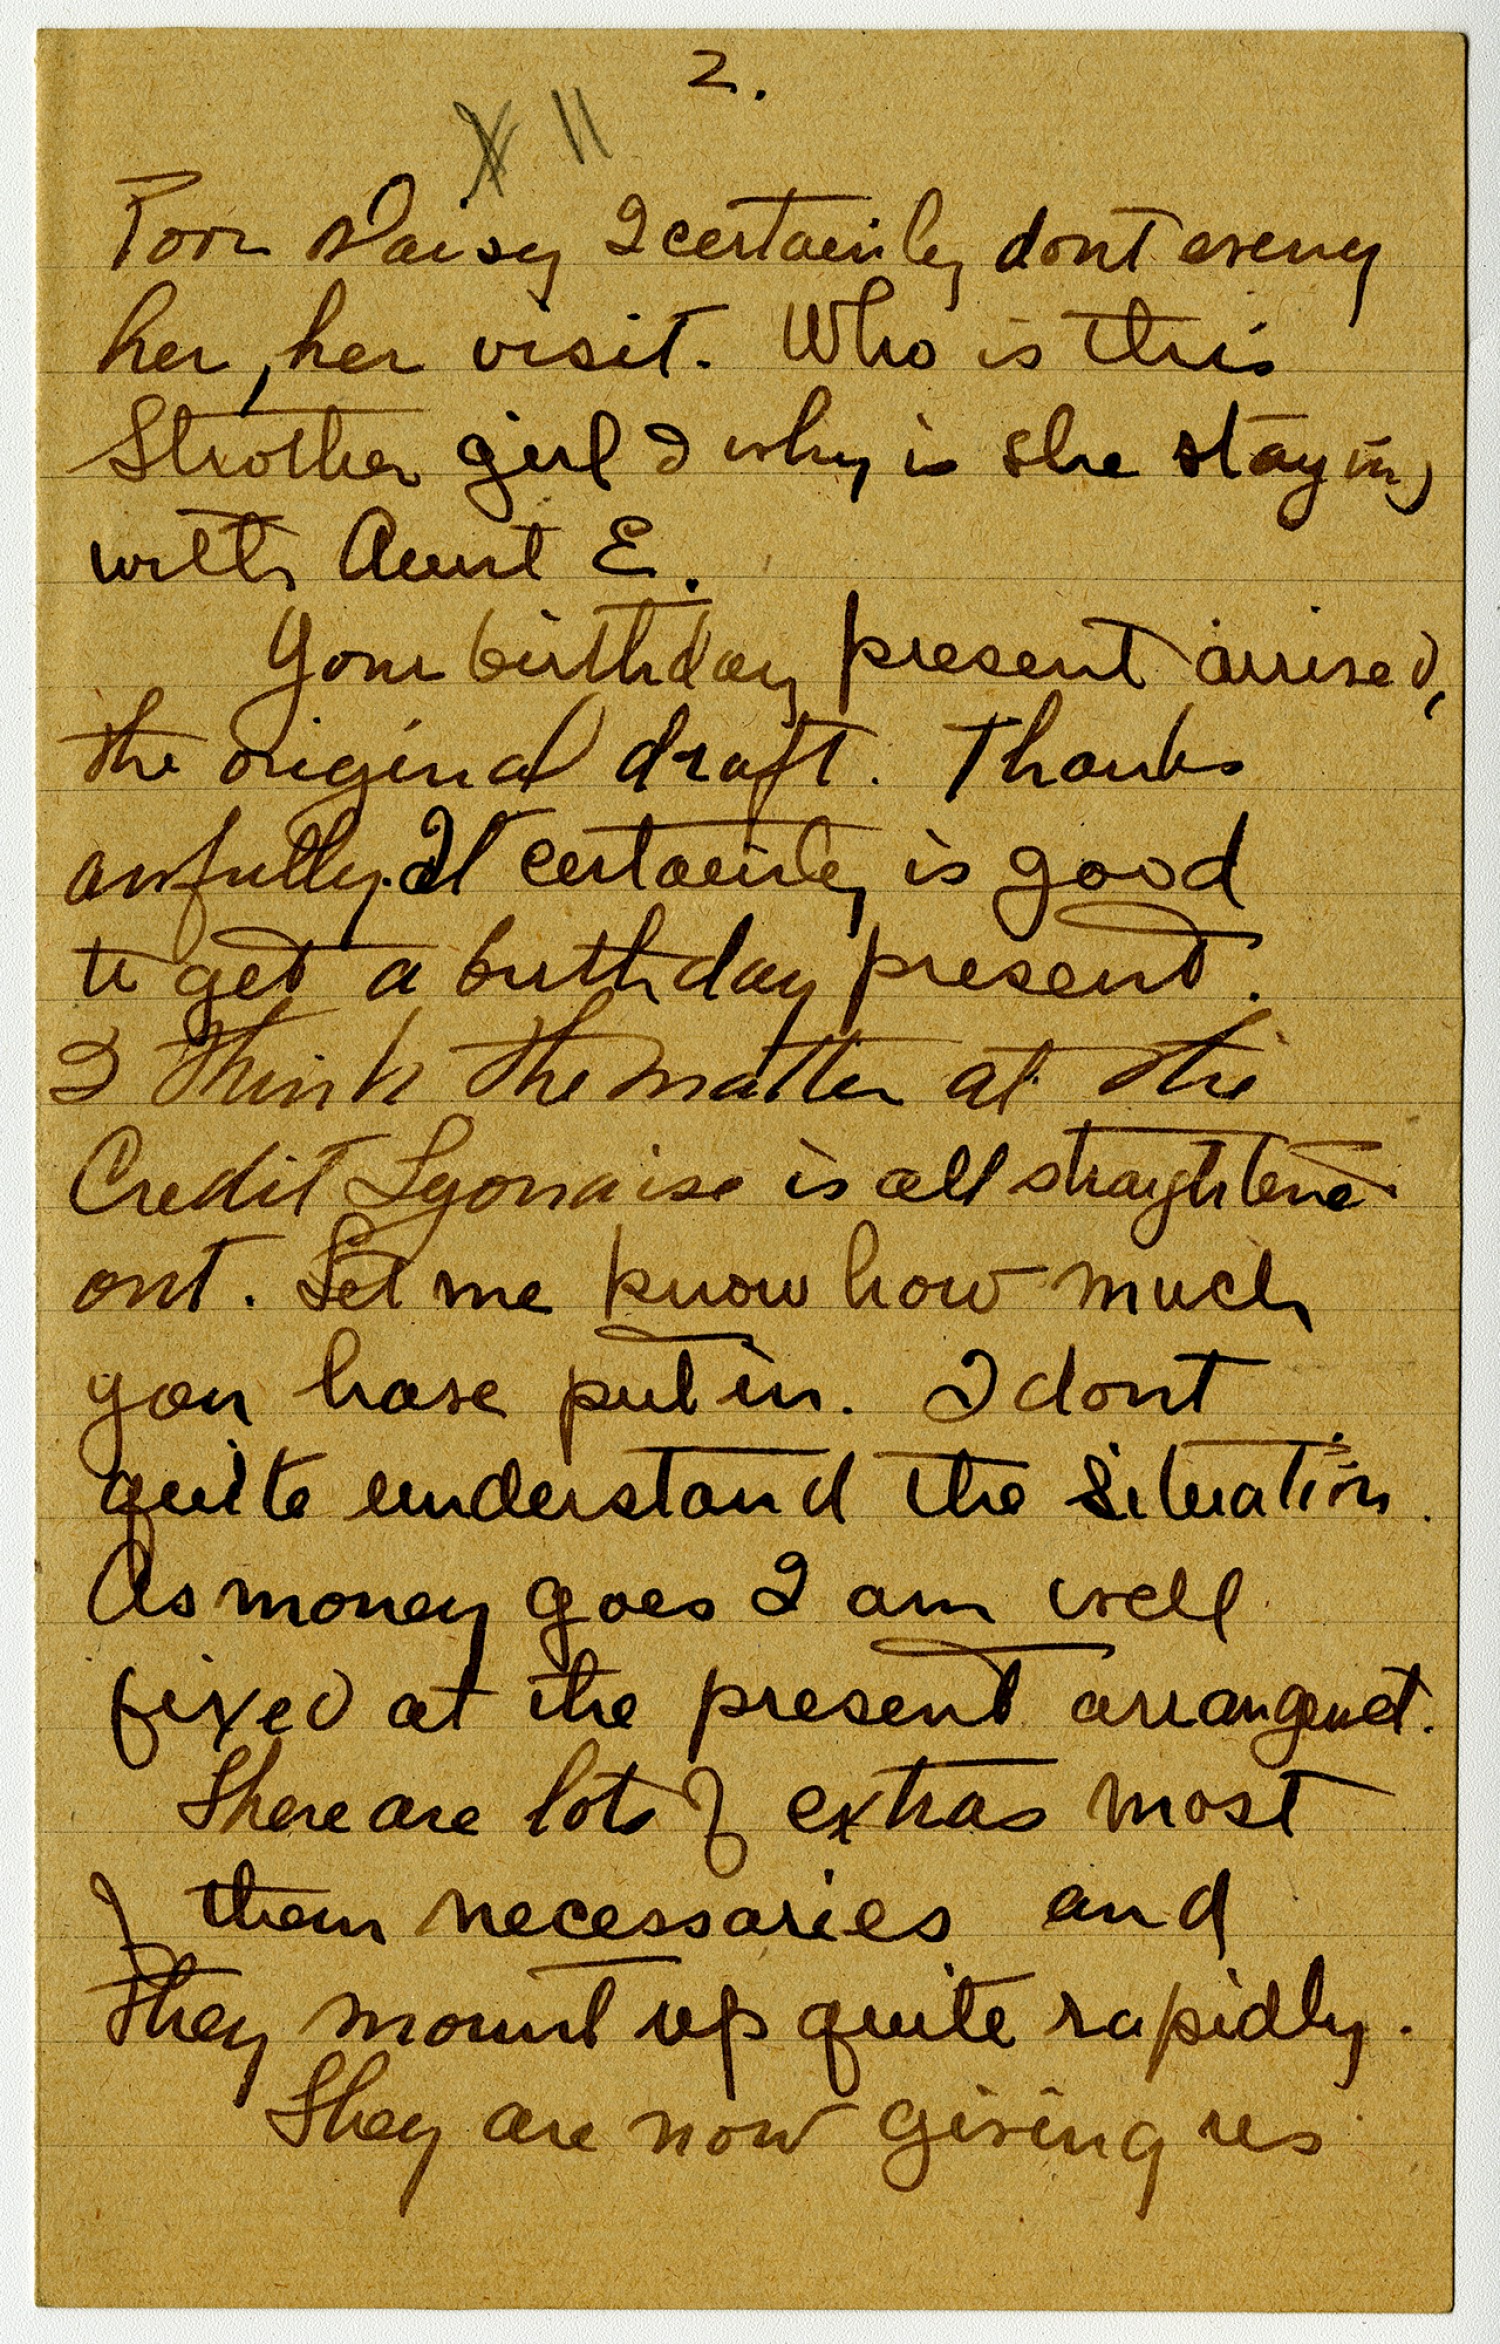 2.
X 11
Poor Daisy I certainly dont eveny
her, her visit. Who is this
Strother girl & why is she staying
with Aunt E.
Your birthday present arrived,
the original draft. Thanks
awfully. It certainly is good
to get a birthday present.
I think the matter at the
Credit Lyonaise is all straightened
out. Let me know how much
you have put in. I dont
quite understand the situation.
As money goes I am well
fixed at the present arrangemet.
There are lots of extras most
of them necessaries and
they mount up quite rapidly.
They are now giving us